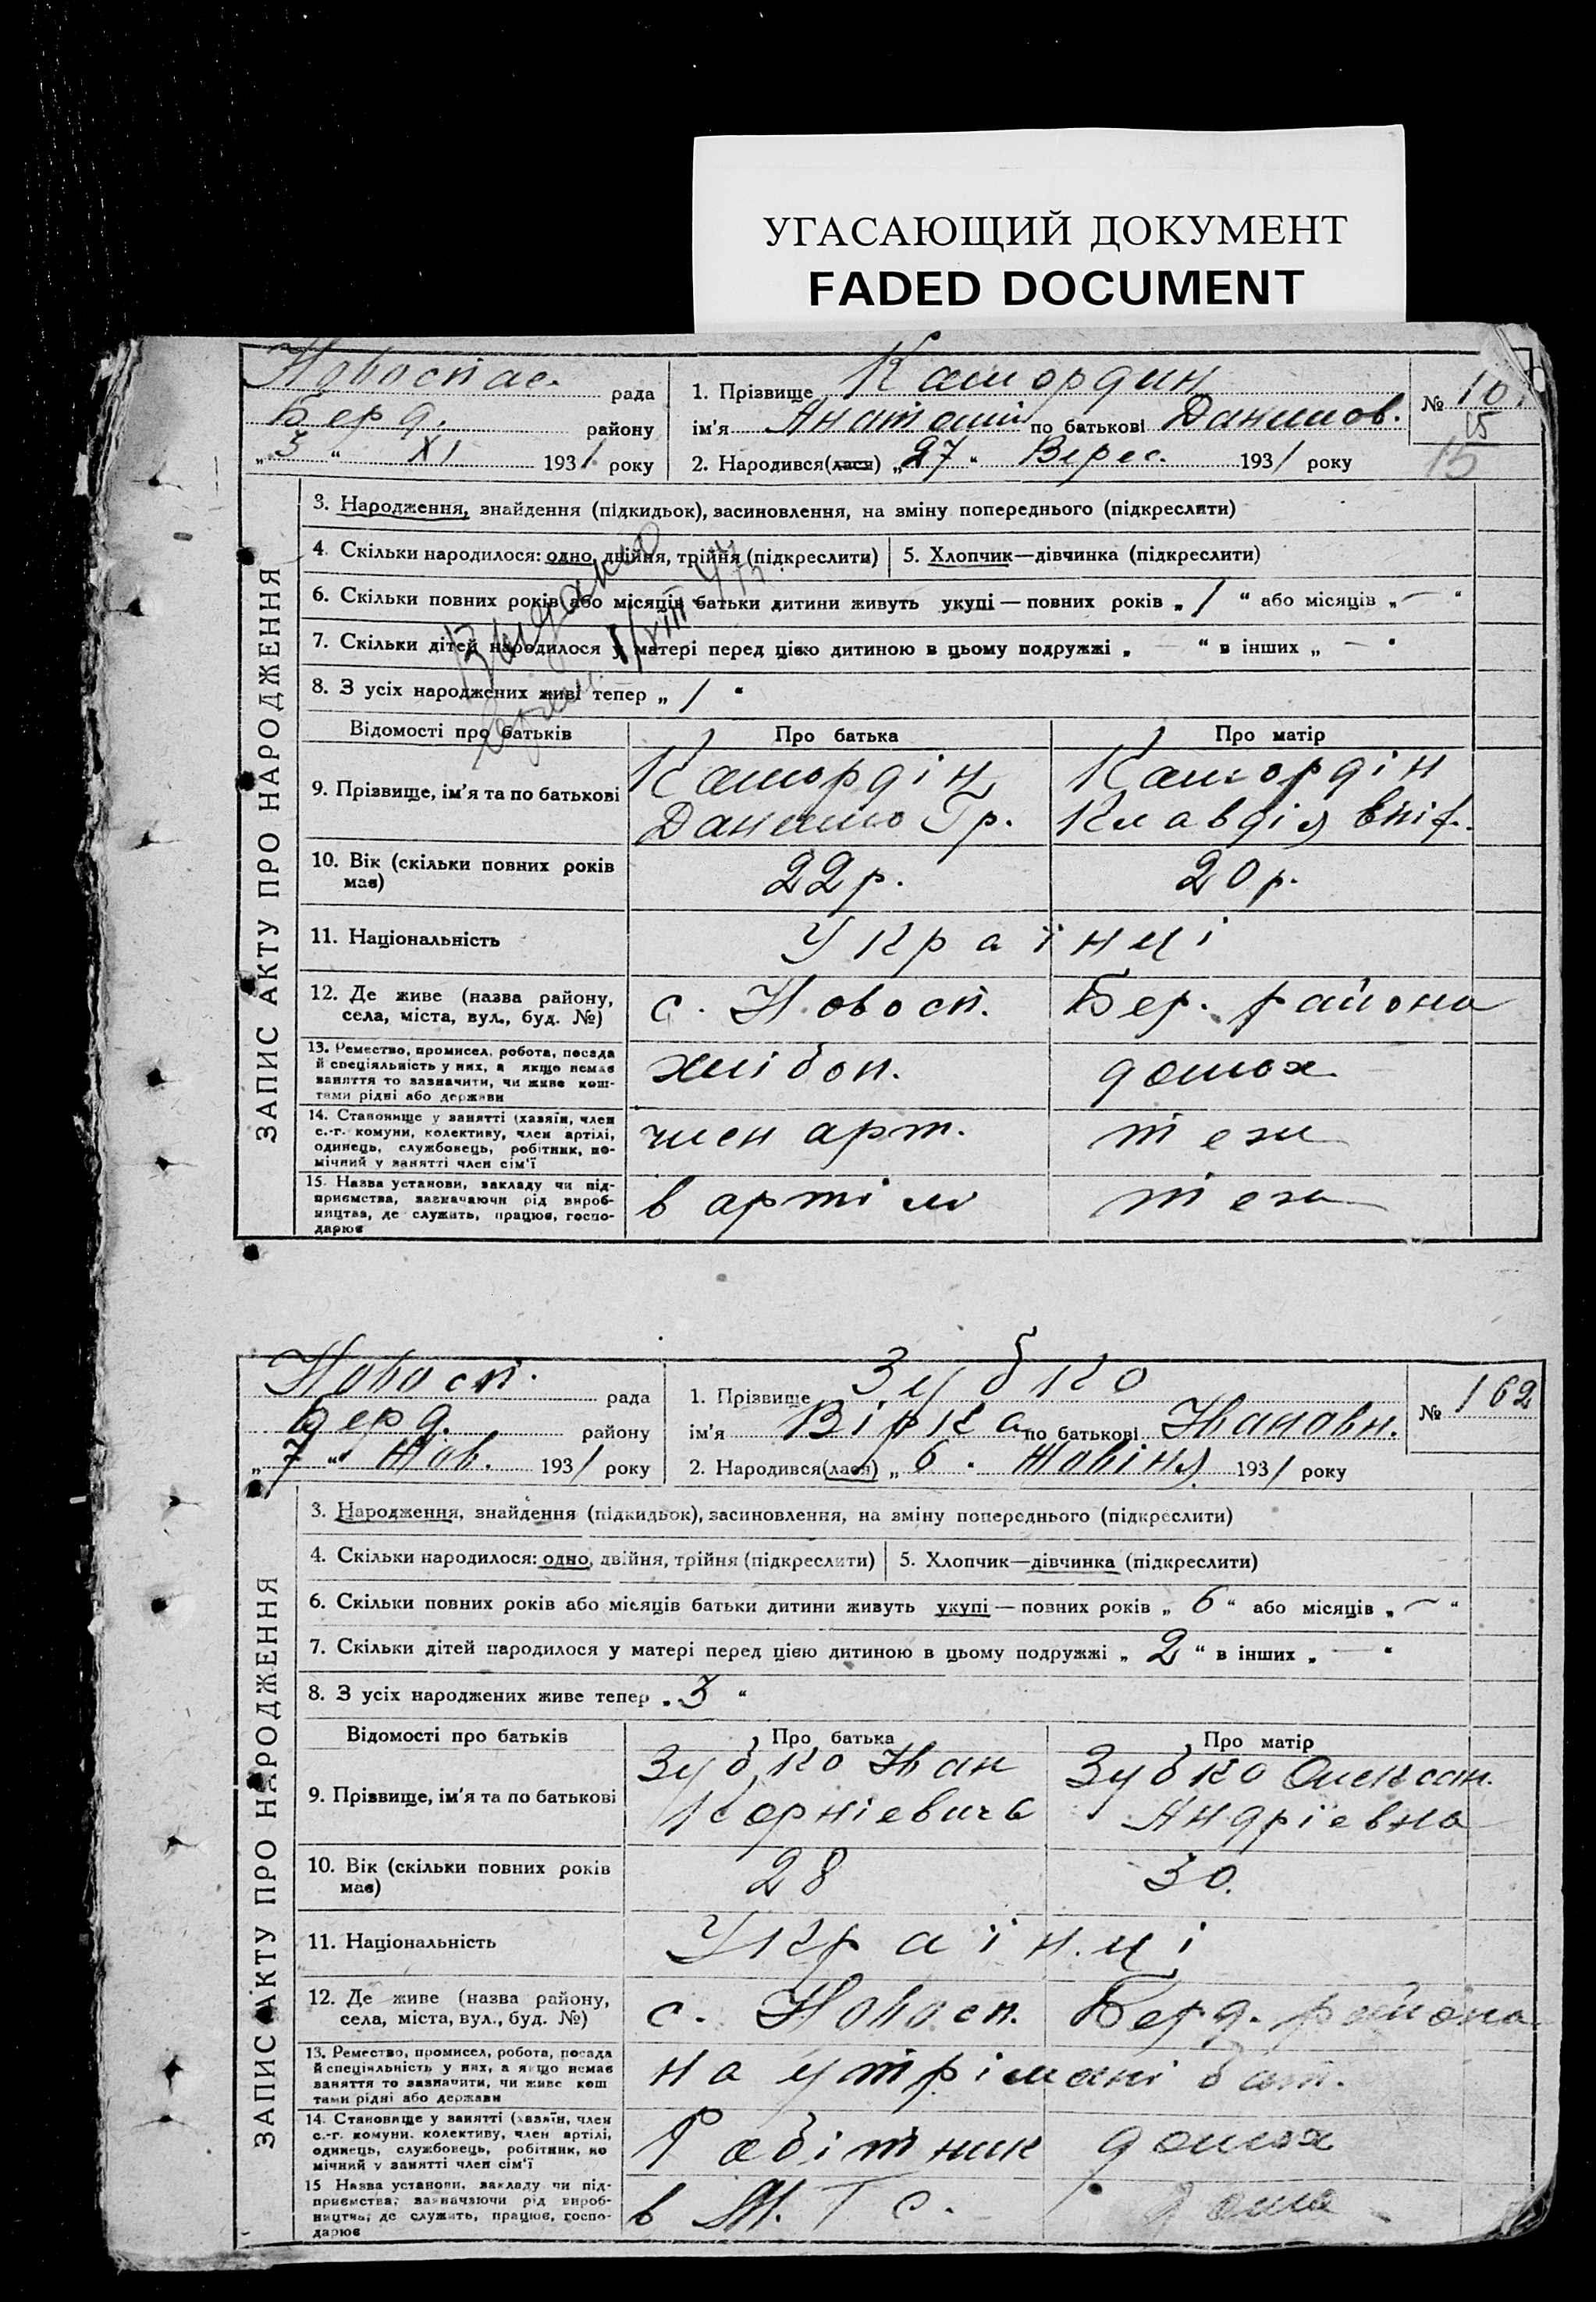 УГАСАЮЩИЙ ДОКУМЕНТ
FADED DOCUMENT
Новоспас. рада
Берд. району
„3“ XI 1931 року
1. Прізвище Кашордин
ім'я Анатолий по батькові Данилов.
2. Народився(лася) „27“ Верес. 1931 року
№ 10
15
15
3. Народження, знайдення (підкидьок), засиновлення, на зміну попереднього (підкреслити)
4. Скільки народилося: одно, двійня, трійня (підкреслити) 5. Хлопчик—дівчинка (підкреслити)
6. Скільки повних років або місяців батьки дитини живуть укупі — повних років „1“ або місяців „—“
7. Скільки дітей народилося у матері перед цією дитиною в цьому подружжі „—“ в інших „—“
8. З усіх народжених живі тепер „1“
Видано
Відомості про батьків Про батька Про матір
9. Прізвище, ім'я та по батькові
Кашордін Кашордін
Данило Гр. Клавдія Епіф.
10. Вік (скільки повних років має) 22 р. 20 р.
11. Національність Українці
12. Де живе (назва району, села, міста, вул., буд. №) с. Новосп. Бер. района
13. Ремество, промисел, робота, посада
й спеціяльність у них, а якщо немає
заняття то зазначити, чи живе кош-
тами рідні або держави
хлібоп. домох
14. Становище у занятті (хазяїн, член
с.-г. комуни, колективу, член артілі,
одинець, службовець, робітник, по-
мічний у занятті член сім'ї
член арт. теж
15. Назва установи, закладу чи під-
приємства, зазначаючи рід вироб-
ництва, де служить, працює, госпо-
дарює
в артілі теж
ЗАПИС АКТУ ПРО НАРОДЖЕННЯ
Новосп. рада
Берд. району
„7“ Жов. 1931 року
1. Прізвище Зубко
ім'я Вірка по батькові Івановн.
2. Народився(лася) „6“ Жовтня 1931 року
№ 162
3. Народження, знайдення (підкидьок), засиновлення, на зміну попереднього (підкреслити)
4. Скільки народилося: одно, двійня, трійня (підкреслити) 5. Хлопчик—дівчинка (підкреслити)
6. Скільки повних років або місяців батьки дитини живуть укупі — повних років „6“ або місяців „—“
7. Скільки дітей народилося у матері перед цією дитиною в цьому подружжі „2“ в інших „—“
8. З усіх народжених живе тепер „3“
Відомості про батьків Про батька Про матір
9. Прізвище, ім'я та по батькові
Зубко Іван Зубко Олексан.
Корнієвич Андрієвна
10. Вік (скільки повних років має) 28 30.
11. Національність Українці
12. Де живе (назва району, села, міста, вул., буд. №) с. Новосп. Берд. района
13. Ремество, промисел, робота, посада
й спеціяльність у них, а якщо немає
заняття то зазначити, чи живе кош
тами рідні або держави
на утрімані бат.
14. Становище у занятті (хазяїн, член
с.-г. комуни, колективу, член артілі,
одинець, службовець, робітник, по
мічний у занятті член сім'ї
Робітник домох
15 Назва установи, закладу чи під-
приємства, зазначаючи рід вироб-
ництва, де служить, працює, госпо-
дарює
в М.Т.С. дома
ЗАПИС АКТУ ПРО НАРОДЖЕННЯ